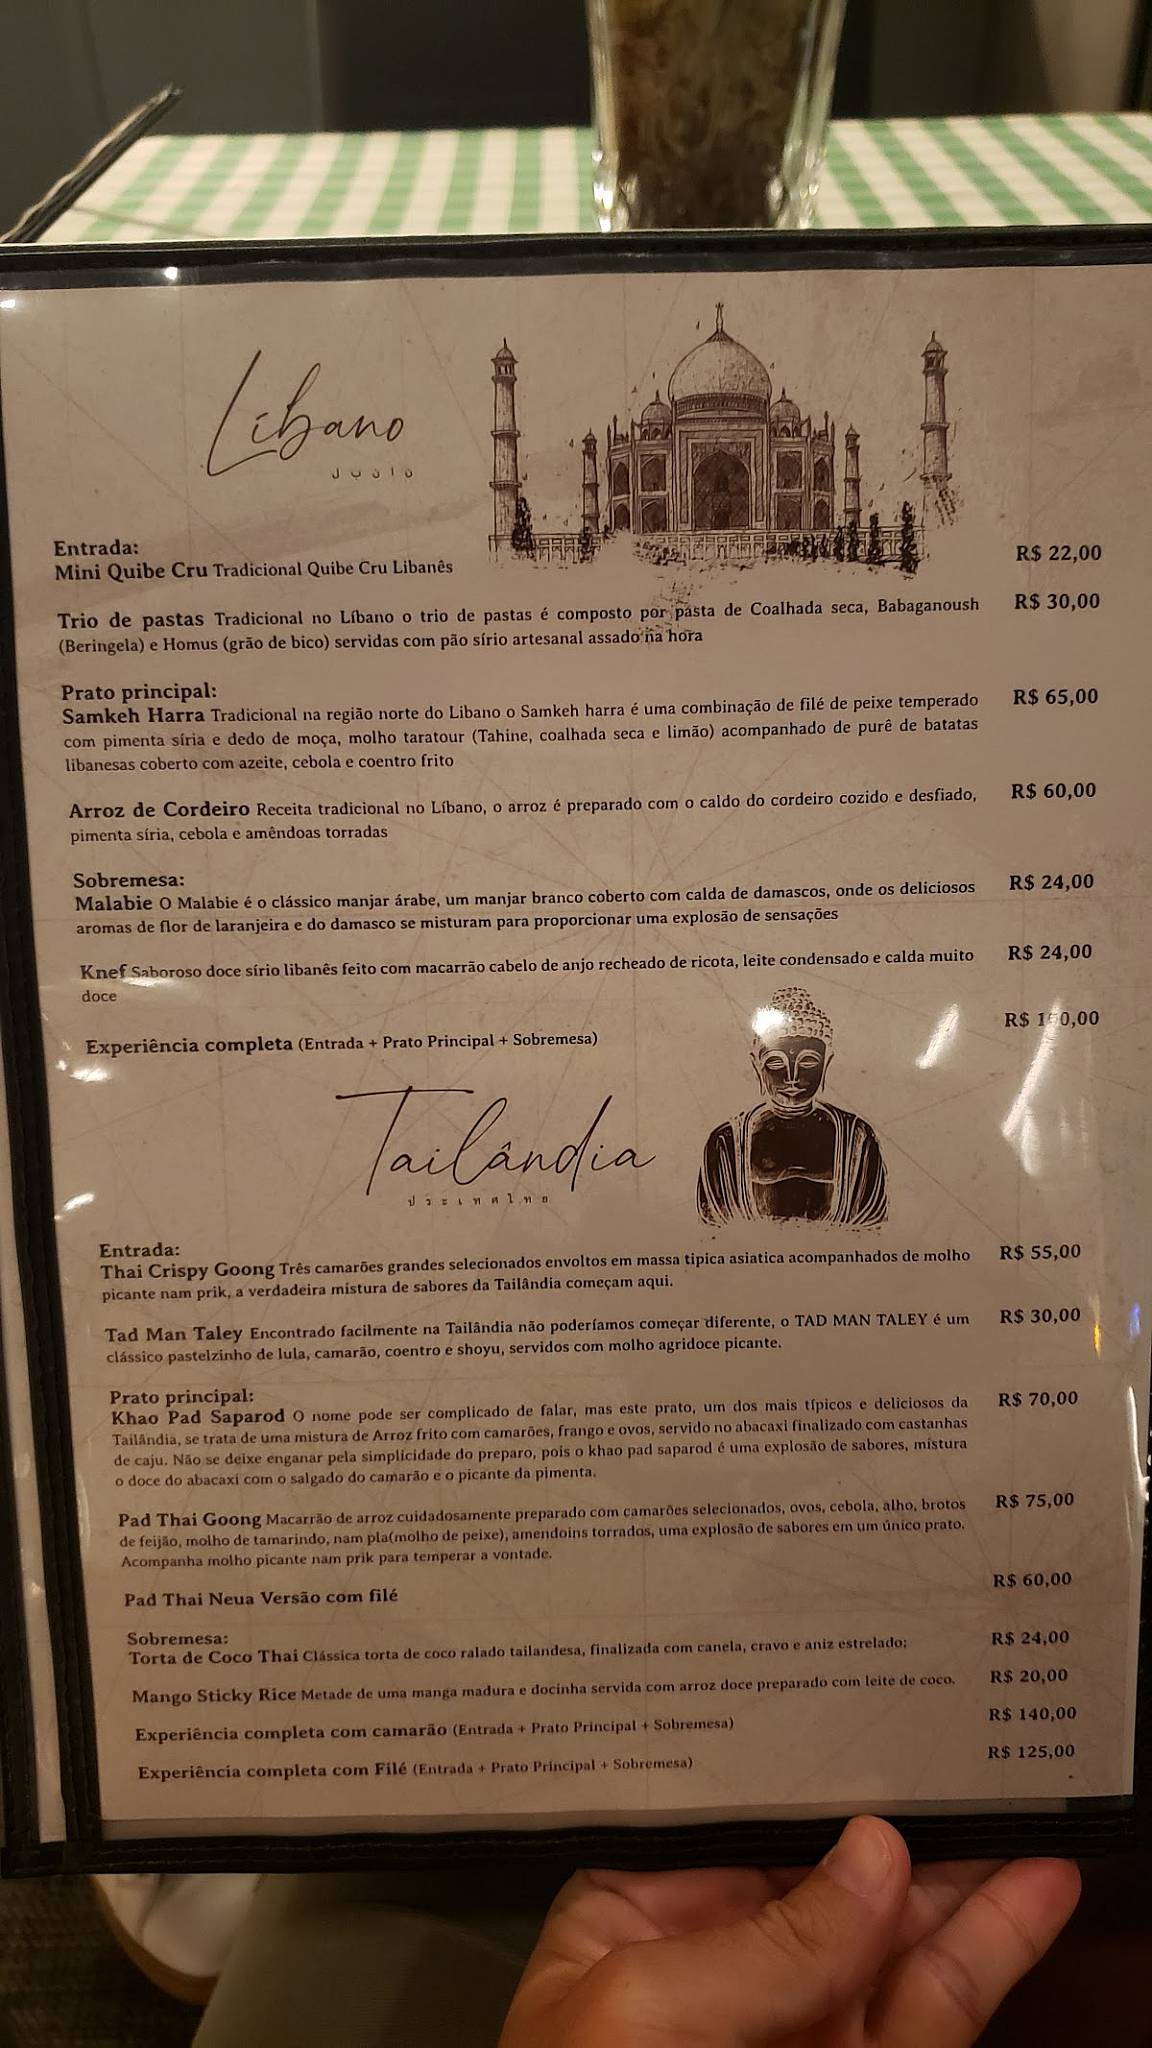 Líbano
Entrada:
Mini Quibe Cru Tradicional Quibe Cru Libanês R$ 22,00
Trio de pastas Tradicional no Líbano o trio de pastas é composto por pasta de Coalhada seca, Babaganoush R$ 30,00
(Beringela) e Homus (grão de bico) servidas com pão sírio artesanal assado na hora
Prato principal:
Samkeh Harra Tradicional na região norte do Libano o Samkeh harra é uma combinação de filé de peixe temperado R$ 65,00
com pimenta síria e dedo de moça, molho taratour (Tahine, coalhada seca e limão) acompanhado de purê de batatas
libanesas coberto com azeite, cebola e coentro frito
Arroz de Cordeiro Receita tradicional no Líbano, o arroz é preparado com o caldo do cordeiro cozido e desfiado, R$ 60,00
pimenta síria, cebola e amêndoas torradas
Sobremesa:
Malabie O Malabie é o clássico manjar árabe, um manjar branco coberto com calda de damascos, onde os deliciosos R$ 24,00
aromas de flor de laranjeira e do damasco se misturam para proporcionar uma explosão de sensações
Knef Saboroso doce sírio libanês feito com macarrão cabelo de anjo recheado de ricota, leite condensado e calda muito R$ 24,00
doce
Experiência completa (Entrada + Prato Principal + Sobremesa) R$
Tailândia
ประเทศไทย
Entrada:
Thai Crispy Goong Três camarões grandes selecionados envoltos em massa tipica asiatica acompanhados de molho R$ 55,00
picante nam prik, a verdadeira mistura de sabores da Tailândia começam aqui.
Tad Man Taley Encontrado facilmente na Tailândia não poderíamos começar diferente, o TAD MAN TALEY é um R$ 30,00
clássico pastelzinho de lula, camarão, coentro e shoyu, servidos com molho agridoce picante.
Prato principal:
Khao Pad Saparod O nome pode ser complicado de falar, mas este prato, um dos mais típicos e deliciosos da R$ 70,00
Tailândia, se trata de uma mistura de Arroz frito com camarões, frango e ovos, servido no abacaxi finalizado com castanhas
de caju. Não se deixe enganar pela simplicidade do preparo, pois o khao pad saparod é uma explosão de sabores, mistura
o doce do abacaxi com o salgado do camarão e o picante da pimenta.
Pad Thai Goong Macarrão de arroz cuidadosamente preparado com camarões selecionados, ovos, cebola, alho, brotos R$ 75,00
de feijão, molho de tamarindo, nam pla(molho de peixe), amendoins torrados, uma explosão de sabores em um único prato.
Acompanha molho picante nam prik para temperar a vontade.
Pad Thai Neua Versão com filé R$ 60,00
Sobremesa:
Torta de Coco Thai Clássica torta de coco ralado tailandesa, finalizada com canela, cravo e aniz estrelado; R$ 24,00
Mango Sticky Rice Metade de uma manga madura e docinha servida com arroz doce preparado com leite de coco. R$ 20,00
Experiência completa com camarão (Entrada + Prato Principal + Sobremesa) R$ 140,00
Experiência completa com Filé (Entrada + Prato Principal + Sobremesa) R$ 125,00